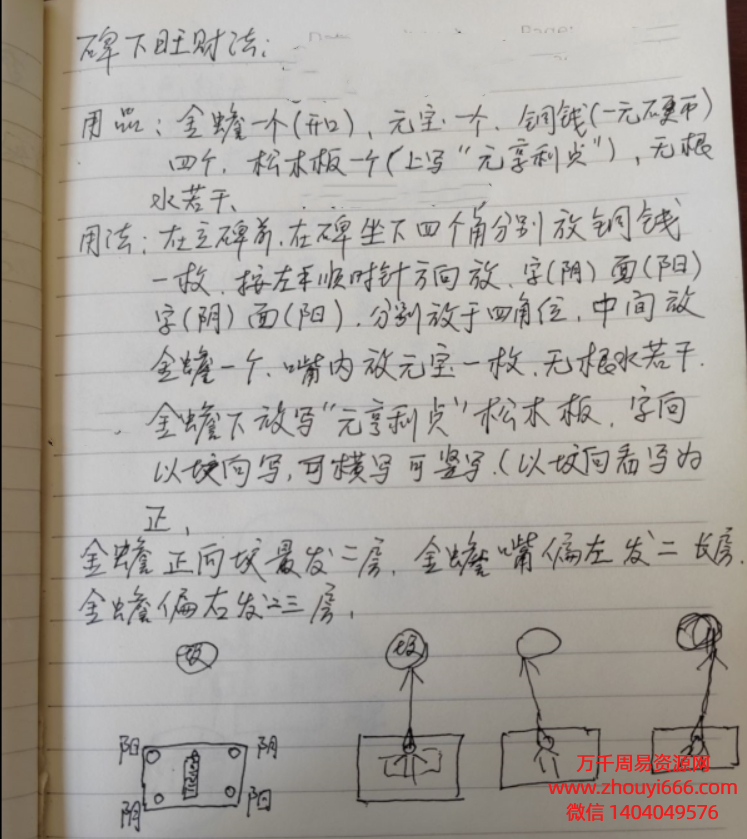 碑下旺财法：
用品：金蟾一个(开口)、元宝一个、铜钱(一元硬币)
四个、松木板一个(上写“元亨利贞”)，无根
水若干、
用法：在立碑前，在碑坐下四个角分别放铜钱
一枚，按左手顺时针方向放，字(阴)面(阳)
字(阴)面(阳)，分别放于四角位，中间放
金蟾一个，嘴内放元宝一枚，无根水若干.
金蟾下放写“元亨利贞”松木板，字向
以坟向写，可横写可竖写.(以坟向看写为
正，
金蟾正向坟最发二房，金蟾嘴偏左发长房.
金蟾偏右发三房，
坟
坟
阳
阴
阴
阳
万千周易资源网
www.zhouyi666.com
微信 1404049576